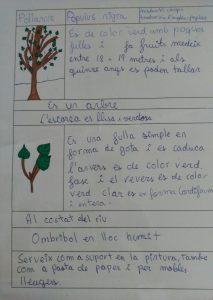 Pollancre
Populus nigra
Es de color verd amb poques
fulles i fa fruits medeix
entre 18 - 19 metres i als
quinze anys es poden tallar
Es un arbre
L'escorça es llisa i verdosa
Es una fulla simple en
forma de gota i es caduca
l'anvers es de color verd
fosc i el revers es de color
verd clar es en forma
i entera.
Al costat del riu
Ombribol en lloc humit
Serveix com a suport en la pintura, també
com a pasta de paper i per mobles
lleugers.